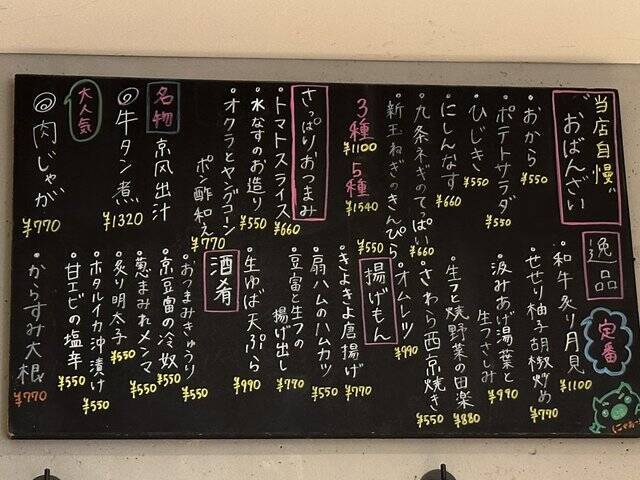 当店自慢
おばんざい
・おから ¥550
・ポテトサラダ ¥550
・ひじき ¥550
・にしんなす ¥660
・九条ネギのてっぱい ¥660
・新玉ねぎのきんぴら ¥550
3種 ¥1100
5種 ¥1540
さっぱりおつまみ
・トマトスライス ¥660
・水なすのお造り ¥550
・オクラとヤングコーン
ポン酢和え ¥770
名物
京風出汁
◎牛タン煮 ¥1320
大人気
◎肉じゃが ¥770
逸品
定番
・和牛炙り月見 ¥1100
・せせり柚子胡椒炒め ¥770
・汲みあげ湯葉と
生ふさしみ ¥990
・生ふと焼野菜の田楽 ¥880
・さわら西京焼き ¥550
・オムレツ ¥990
揚げもん
・きよきよ唐揚げ ¥770
・扇ハムのハムカツ ¥550
・豆富と生フの
揚げ出し ¥770
・生ゆば天ぷら ¥990
酒肴
・おつまみきゅうり ¥550
・京豆富の冷奴 ¥550
・葱まみれメンマ ¥550
・炙り明太子 ¥550
・ホタルイカ沖漬け ¥550
・甘エビの塩辛 ¥550
・からすみ大根 ¥770